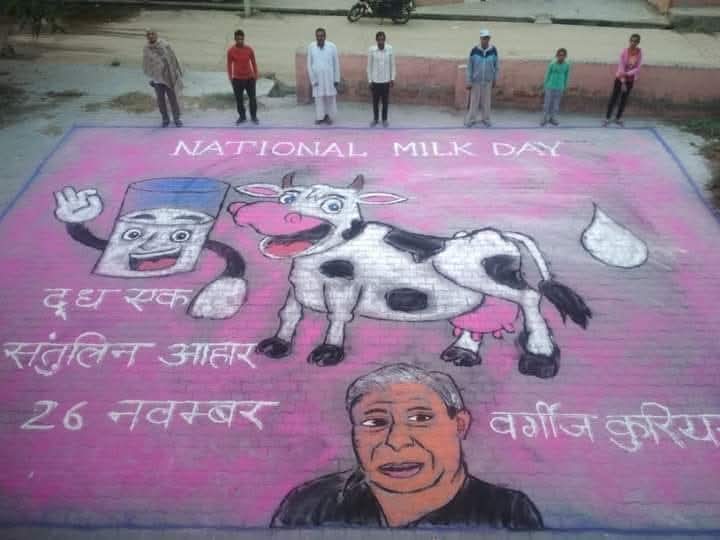 NATIONAL MILK DAY
दूध एक
संतुलिन आहार
26 नवम्बर
वर्गीज कुरिय